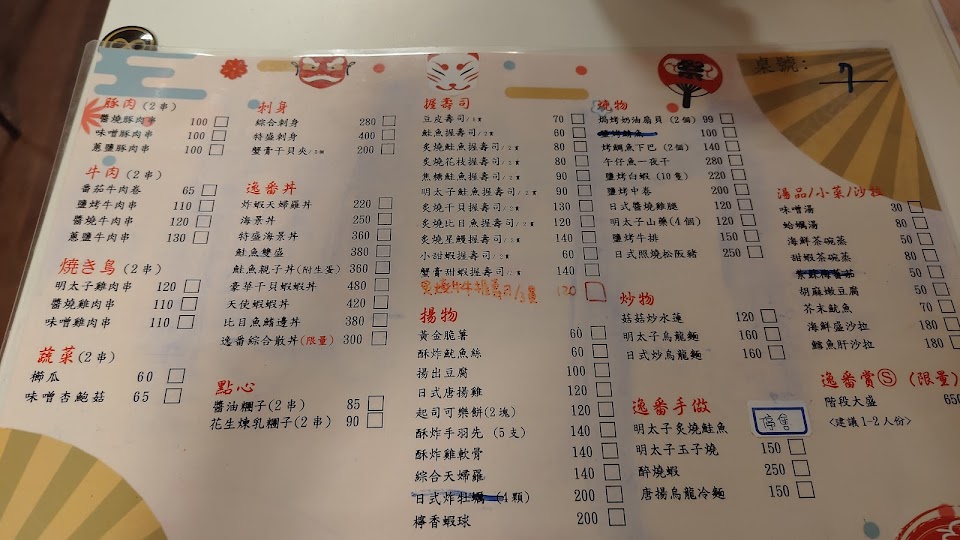 桌號：
豚肉(2串)
醬燒豚肉串 100
味噌豚肉串 100
蔥鹽豚肉串 100
牛肉(2串)
番茄牛肉卷 65
鹽烤牛肉串 110
醬燒牛肉串 120
蔥鹽牛肉串 130
焼き鳥(2串)
明太子雞肉串 120
醬燒雞肉串 110
味噌雞肉串 110
蔬菜(2串)
櫛瓜 60
味噌杏鮑菇 65
刺身
綜合刺身 280
特盛刺身 400
蟹膏干貝夾 200
逸番丼
炸蝦天婦羅丼 220
海景丼 250
特盛海景丼 360
鮭魚雙盛 380
鮭魚親子丼(附生蛋) 360
豪華干貝蝦蝦丼 480
天使蝦蝦丼 420
比目魚鰭邊丼 380
逸番綜合散丼(限量) 300
點心
醬油糰子(2串) 85
花生煉乳糰子(2串) 90
握壽司
豆皮壽司/2貫 70
鮭魚握壽司/2貫 60
炙燒鮭魚握壽司/2貫 80
炙燒花枝握壽司/2貫 80
焦糖鮭魚握壽司/2貫 90
明太子鮭魚握壽司/2貫 90
炙燒干貝握壽司/2貫 130
炙燒比目魚握壽司/2貫 120
炙燒星鰻握壽司/2貫 140
小甜蝦握壽司/2貫 60
蟹膏甜蝦握壽司/2貫 140
炙燒牛握壽司 120
揚物
黃金脆薯 60
酥炸魷魚絲 60
揚出豆腐 100
日式唐揚雞 120
起司可樂餅(2塊) 120
酥炸手羽先 (5支) 140
酥炸雞軟骨 140
綜合天婦羅 140
日式炸牡蠣 (4顆) 200
檸香蝦球 200
燒物
焗烤奶油扇貝 (2個) 99
鹽烤鯖魚 100
烤鯛魚下巴 (2個) 140
午仔魚一夜干 280
鹽烤白蝦 (10隻) 220
鹽烤中卷 200
日式醬燒雞腿 120
明太子山藥(4個) 120
鹽烤牛排 150
日式照燒松阪豬 250
炒物
菇菇炒水蓮 120
明太子烏龍麵 160
日式炒烏龍麵 160
逸番手做
明太子炙燒鮭魚 停售
明太子玉子燒 150
醉燒蝦 250
唐揚烏龍冷麵 150
湯品/小菜/沙拉
味噌湯 30
蛤蠣湯 80
海鮮茶碗蒸 50
甜蝦茶碗蒸 80
胡麻嫩豆腐 50
芥末魷魚 70
海鮮盛沙拉 180
鱈魚肝沙拉 180
逸番賞Ⓢ (限量)
階段大盛 650
<建議1-2人份>